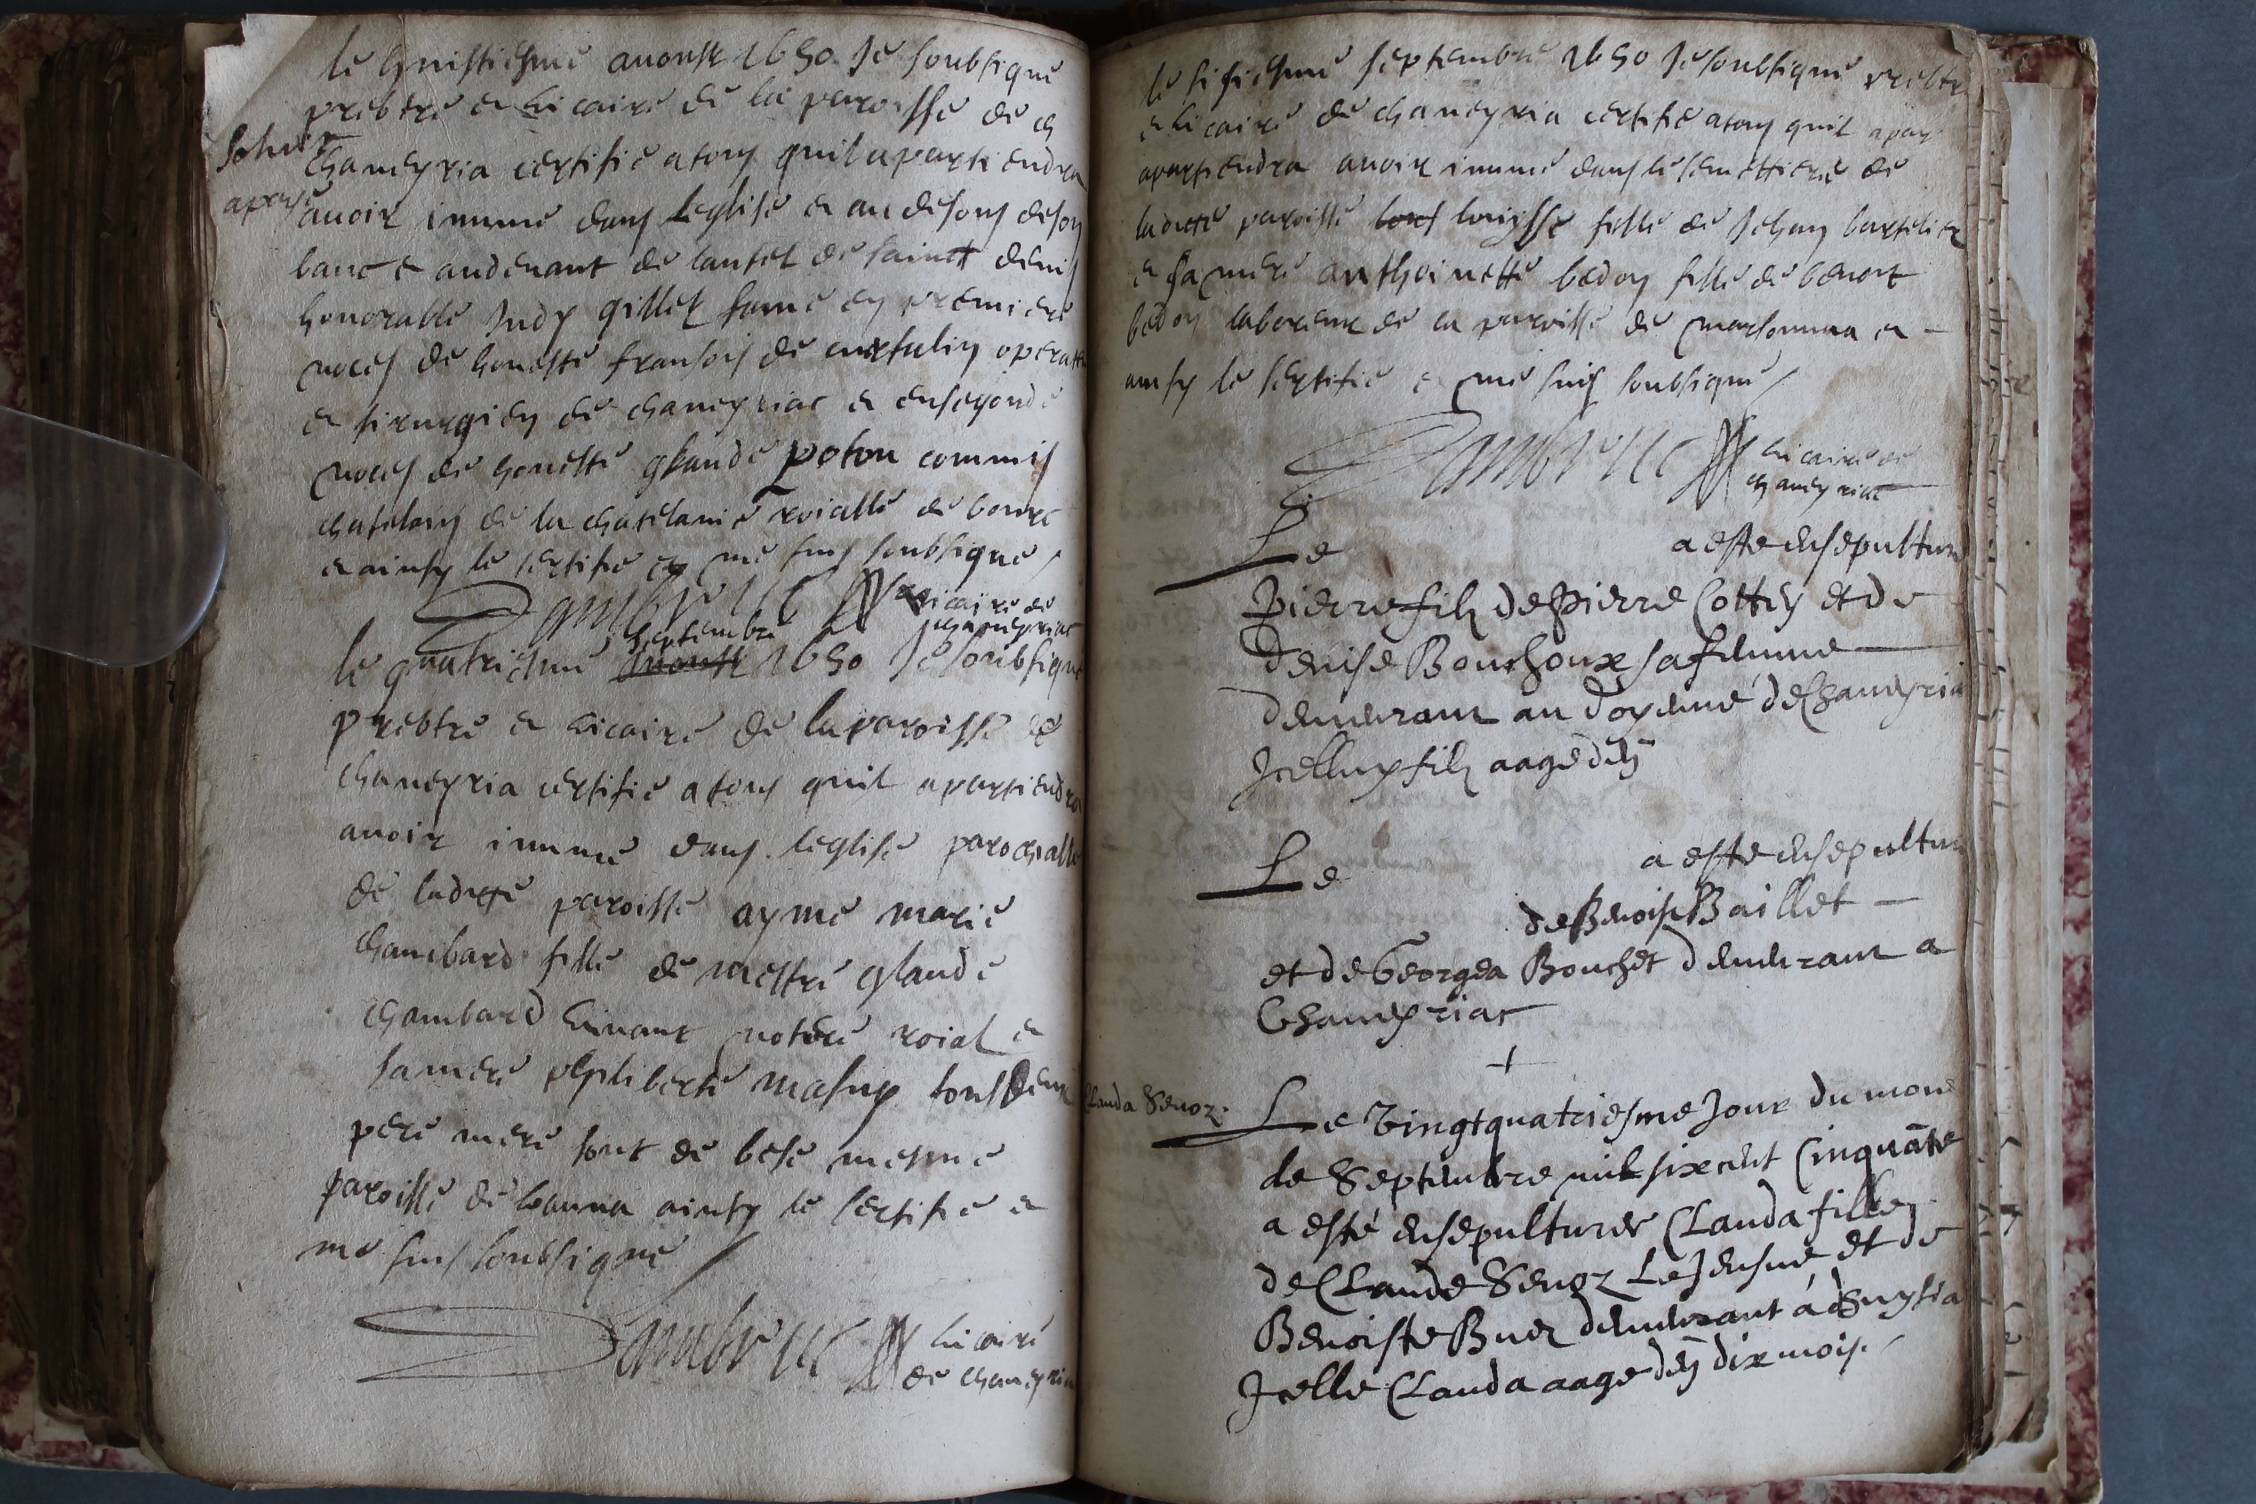 le huistiesme avoust 1650 Je soubsigne
prebtre e vicaire de la paroisse de ch
chaneyria certifie a tous quil apartiendra
avoir inume dans leglise e au desous de son
banc e audevant de lautel de sainct denis
honorable Judy gillet fame en premiere
noces de honeste fransois de
e sirurgien de chaneyriac e en segonde
noces de honeste glaude poton commis
chatelain de la chatelanie roialle de bourc
e ainsy le sertifie e me suis soubsigne
vicaire de
chaneyriac
septembre
le quatriesme avoust 1650 Je soubsigne
prebtre e vicaire de la paroisse de
chaneyria certifie a tous quil apartiendra
avoir inume dans leglise parochialle
de ladicte paroisse ayme marie
chambard fille de mestre glaude
chambard vivant notere roial e
sa mere philiberte masuy tous deux
pere mere sont de mesme
paroisse de ainsy le sertifie e
me suis soubsigne
vicaire
de chaneyria
le sisiesme septembre 1650 Je soubsigne prebtre
e vicaire de chaneyria certifie a tous quil apar
apartiendra avoir inume dans le semettiere de
ladicte paroisse louys louysse fille de Jehan bartelier
e sa mere anthoinette bedon fille de benoit
bedon laboreur de la paroisse de marsonnaa e
ainsy le sertifie e me suis soubsigne
vicaire de
chaneyriac
Le a este ensepulture
Pierre filz de Pierre Cottey et de
denise Bouchoux sa femme
demeurant au doyenné de Chaneyria
Icelluy filz aage den
Le a este ensepulture
de Benoist Baillet
et de Georgea Bouchet demeurant a
Chaneyriac
Clauda Sevoz
Le vingtquatriesme Jour du mois
de Septembre mil six cent Cinquãte
a esté ensepulturer Clauda fille
de Claude Sevoz Le Jeusne et de
Benoiste Buer demeurant á
Icelle Clauda aage den dix mois.